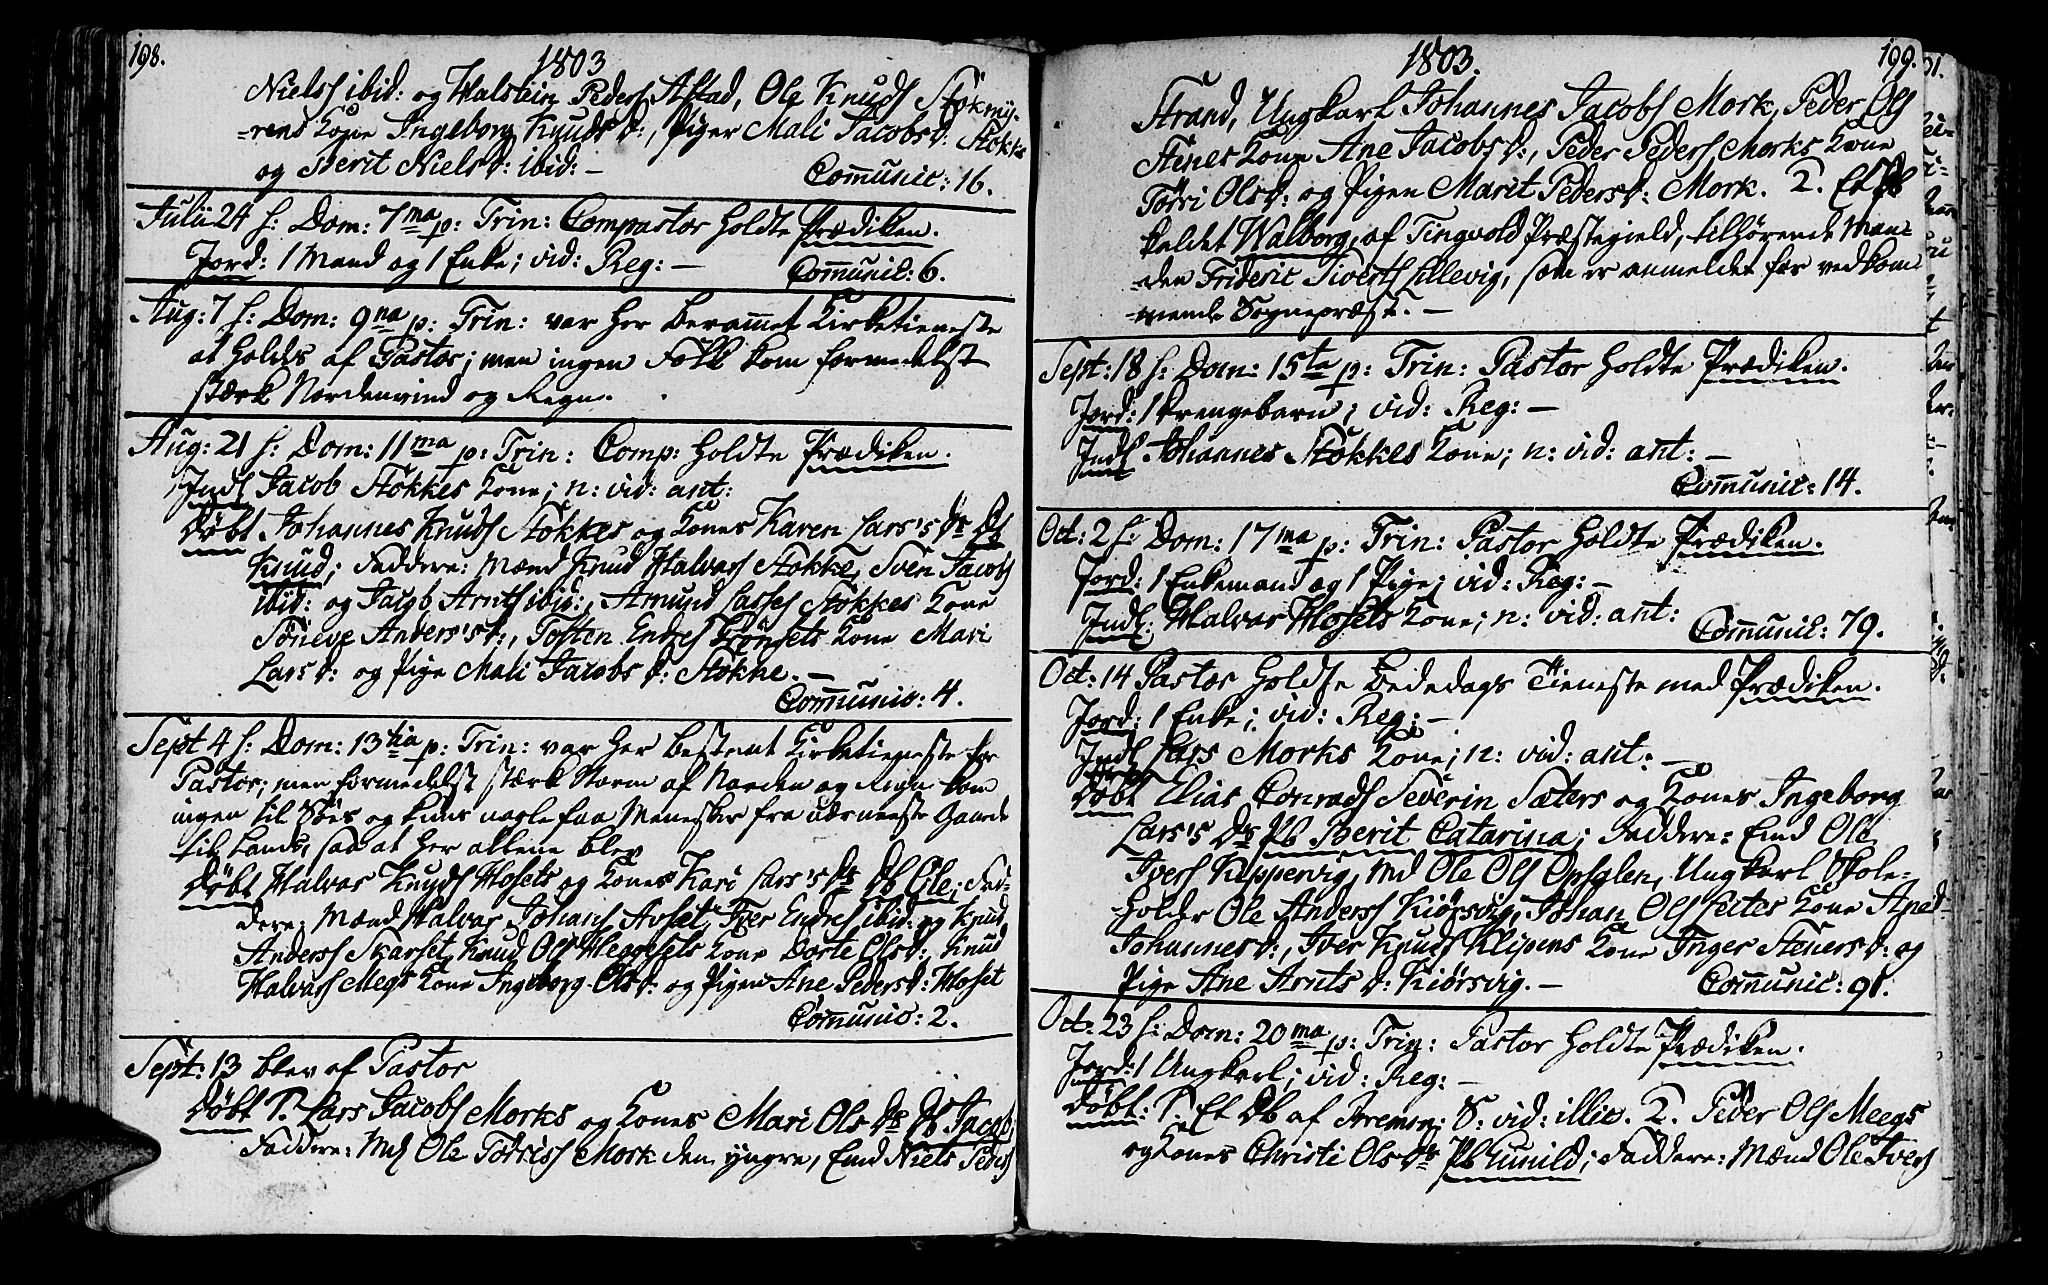 198.
1803
Niels ibid: og Halstein Peders Afstad, Ole Knuds Stokmÿ-
-rens Kone Ingeborg Knuds D:, Piger Mali Jacobs D: Stokke
og Berit Niels D: ibid: –
Com̄unic: 16.
Julii 24 h: Dom: 7ma p: Trin: Compastor holdte Prædiken.
Jord: 1 Mand og 1 Enke; vid: Reg: –
Com̄unic: 6.
Aug: 7 h: Dom: 9na p: Trin: var her beram̄et Kirketieneste
at holdes af Pastor; men ingen Folk kom formedelst
stærk Nordenvind og Regn.
Aug: 21 h: Dom: 11ma p: Trin: Comp: holdte Prædiken.
Indl Jacob Stokkes Kone; n: vid: ant:
Døbt Johannes Knuds Stokkes og Kones Karen Lars's Ds Db
Knud; Faddere: Mænd Knud Halvors Stokke, Sven Jacobs
ibid: og Jacob Arnts ibid:, Amund Lasses Stokkes Kone
Sønneve Anders's D:, Tosten Endres Trønsets Kone Mari
Lars D: og Pige Mali Jacobs D: Stokke. –
Com̄unic: 4.
Sept 4 h: Dom: 13tia p: Trin: var her bestemt Kirketieneste for
Pastor; men formedelst stærk Storm af Norden og Regn kom
ingen til Søes og kuns nogle faa Mennesker fra nærmeste Gaarde
til Lands, saa at her allene blev
Døbt Halvor Knuds Hosets og Kones Kari Lars's Ds Db Ole; Fad-
dere: Mænd Halvor Johans Avset, Iver Endres ibid: og Knud
Anders Skarset, Knud Ols Meggesets Kone Dorte Ols D:, Knud
Halvors Megs Kone Ingeborg Ols D: og Pigen Ane Peders D: Hoset
Com̄unic: 2.
Sept: 13 blev af Pastor
Døbt 1. Lars Jacobs Morks og Kones Mari Ols Ds Db Jacob,
Faddere: Md Ole Torris Mork den yngre, Emd Niels Peders
199.
1803.
Strand, Ungkarl Johannes Jacobs Mork, Peder Ols
Stenes Kone Ane Jacobs D:, Peder Peders Morks Kone
Torri Ols D: og Pigen Marit Peders D: Mork. 2. Et Pb
kaldet Walborg, af Tingvold Præstegield, tilhørende Man-
-den Frideric Siverts Lillevig, som er anmeldet for vedkom-
-mende Sognepræst. –
Sept: 18 h: Dom: 15ta p: Trin: Pastor holdte Prædiken.
Jord: 1 Drengebarn; vid: Reg: –
Indl Johannes Stokkes Kone; n: vid: ant: –
Com̄unic: 14.
Oct: 2 h: Dom: 17ma p: Trin: Pastor holdte Prædiken.
Jord: 1 Enkemand og 1 Pige; vid: Reg: –
Indl: Halvor Hosets Kone; n: vid: ant:
Com̄unic: 79.
Oct: 14 Pastor holdte Bededags Tieneste med Prædiken.
Jord: 1 Enke; vid: Reg: –
Indl Lars Morks Kone; n: vid: ant: –
Døbt Elias Conrads Severin Sæters og Kones Ingeborg
Lars's Ds Pb Berit Catarina; Faddere: Emd Ole
Ivers Kippervig, Md Ole Ols Opsalen, Ungkarl Skole-
holder Ole Anders Kiørsvig, Johan Ols Leites Kone Ane
Johannes D:, Iver Knuds Klipens Kone Inger Steners D: og
Pige Ane Arnts D: Kiørsvig. –
Com̄unic: 91.
Oct: 23 h: Dom: 20ma p: Trin: Pastor holdte Prædiken.
Jord: 1 Ungkarl; vid: Reg: –
Døbt: 1. Et Db af S: vid: illic. 2. Peder Ols Meegs
og Kones Christi Ols Ds Pb Gunild; Faddere: Mænd Ole Ivers